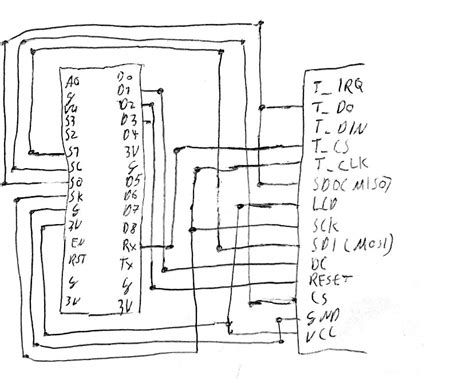 A0 D0
G D1
VU D2
S3 D3
S2 D4
S1 3V
SC G
S0 D5
SK D6
G D7
3V D8
EN RX
RST TX
G G
3V 3V
T_IRQ
T_DO
T_DIN
T_CS
T_CLK
SDO(MISO)
LCD
SCK
SDI(MOSI)
DC
RESET
CS
GND
VCC